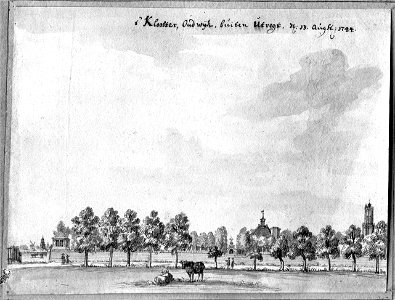 't Klooster, Oudwyk, buiten Utregt. d. 13. Aug: 1744.